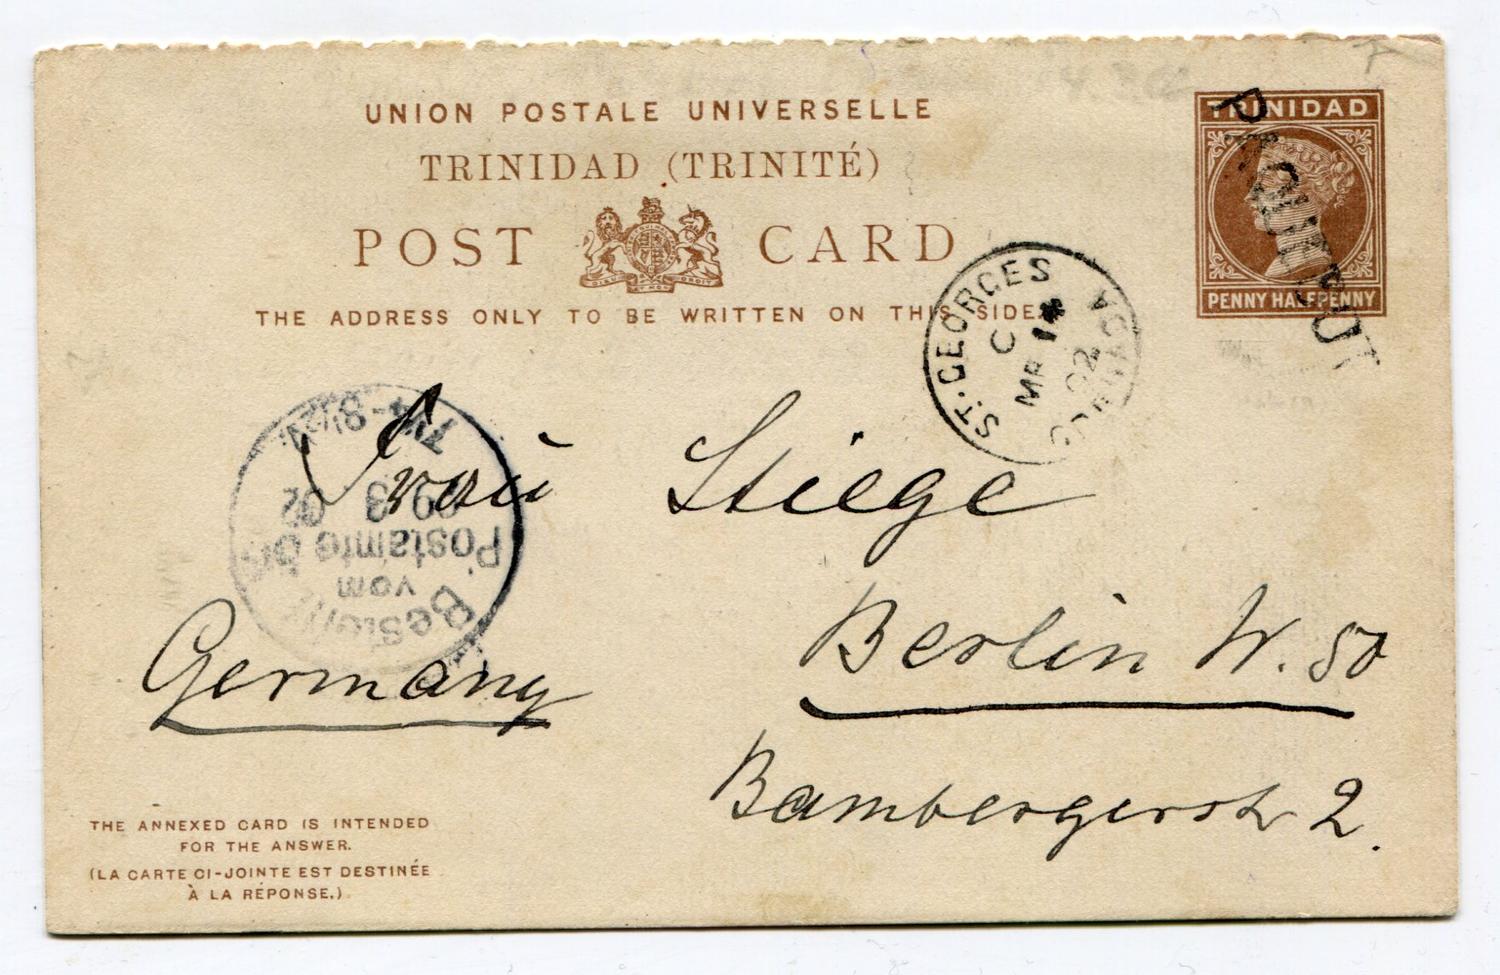 UNION POSTALE UNIVERSELLE
TRINIDAD (TRINITÉ)
POST CARD
THE ADDRESS ONLY TO BE WRITTEN ON THIS SIDE.
TRINIDAD
PENNY HALFPENNY
PAQUEBOT
ST. GEORGES
C
MR 14
02
GRENADA
Bestellt
vom
Postamte 50
29 3 02
Frau Stiege
Berlin W. 50
Bambergerstr 2.
Germany
THE ANNEXED CARD IS INTENDED
FOR THE ANSWER.
(LA CARTE CI-JOINTE EST DESTINÉE
À LA RÉPONSE.)